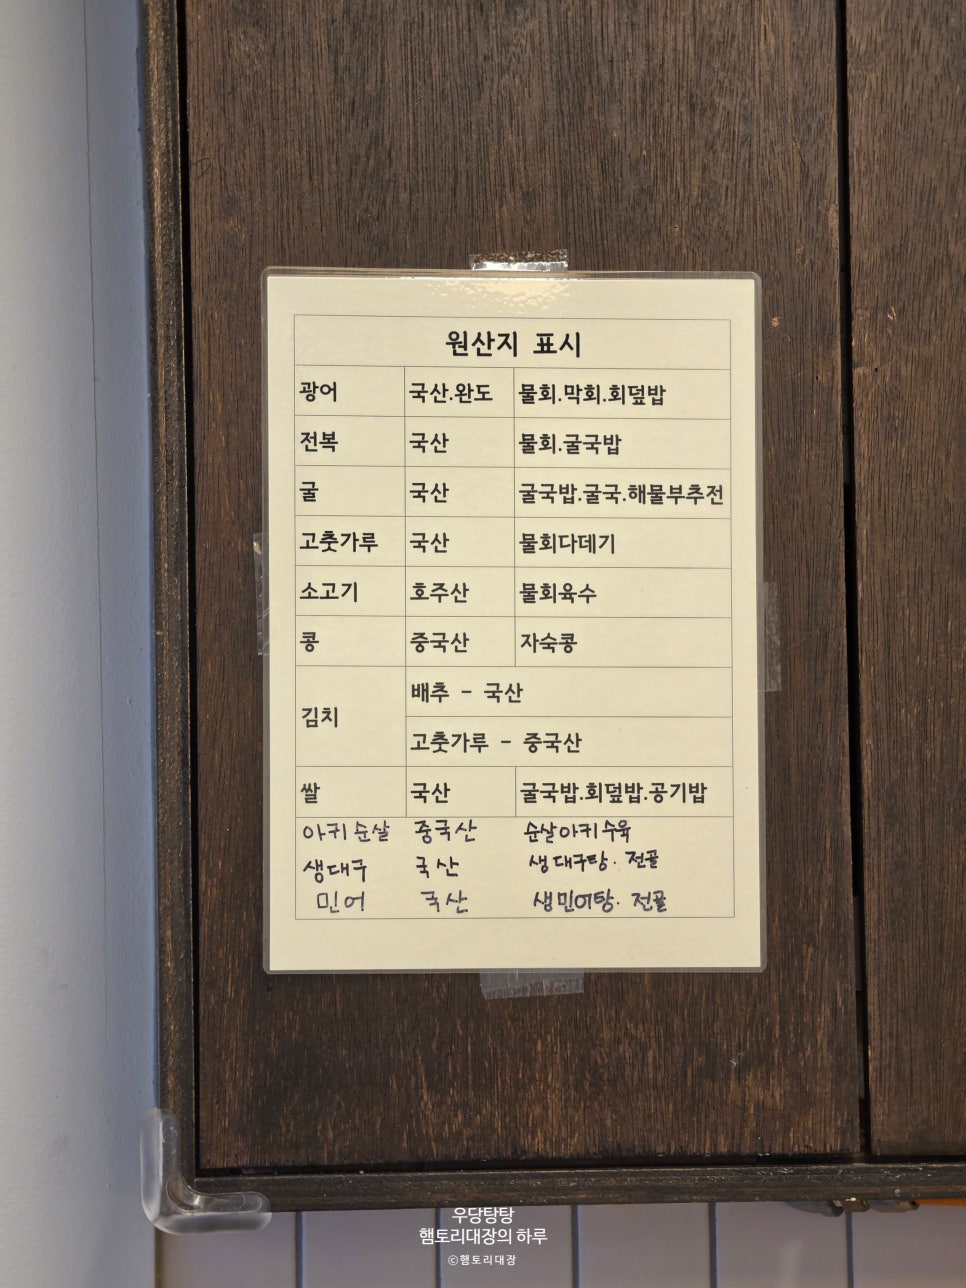 원산지 표시
광어 국산.완도 물회.막회.회덮밥
전복 국산 물회.굴국밥
굴 국산 굴국밥.굴국.해물부추전
고춧가루 국산 물회다데기
소고기 호주산 물회육수
콩 중국산 자숙콩
김치
배추 - 국산
고춧가루 - 중국산
쌀 국산 굴국밥.회덮밥.공기밥
아키순살 중국산 순살아키수육
생대구 국산 생대구탕. 전골
민어 국산 생민어탕. 전골
우당탕탕
햄토리대장의 하루
©햄토리대장